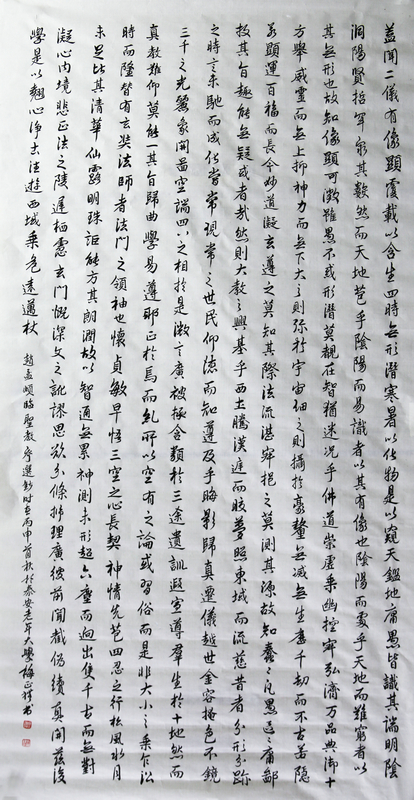 蓋聞二儀有像顯覆載以含生四時無形潛寒暑以化物是以窺天鑑地庸愚皆識其端明陰
洞陽賢哲罕窮其數然而天地苞乎陰陽而易識者以其有像也陰陽處乎天地而難窮者以
其無形也故知像顯可徵雖愚不惑形潛莫覩在智猶迷況乎佛道崇虛乘幽控寂弘濟萬品典御十
方舉威靈而無上抑神力而無下大之則彌於宇宙細之則攝於毫釐無滅無生歷千劫而不古若隱
若顯運百福而長今妙道凝玄遵之莫知其際法流湛寂挹之莫測其源故知蠢蠢凡愚區區庸鄙
投其旨趣能無疑或者哉然則大教之興基乎西土騰漢庭而皎夢照東域而流慈昔者分形分跡
之時言未馳而成化當常現常之世民仰德而知遵及乎晦影歸真遷儀越世金容掩色不鏡
三千之光麗象開圖空端四八之相於是微言廣被拯含類於三途遺訓遐宣導群生於十地然而
真教難仰莫能一其旨歸曲學易遵耶正於焉而糺所以空有之論或習俗而是非大小之乘乍沿
時而隆替有玄奘法師者法門之領袖也懷貞敏早悟三空之心長契神情先苞四忍之行松風水月
未足比其清華仙露明珠詎能方其朗潤故以智通無累神測未形超六塵而迥出隻千古而無對
凝心內境悲正法之陵遲栖慮玄門慨深文之訛謬思欲分條析理廣彼前聞截偽續真開茲後
學是以翹心淨土法遊西域乘危遠邁杖 趙孟頫臨聖教序選鈔時在丙申首秋於泰安老年大學梅正祥書